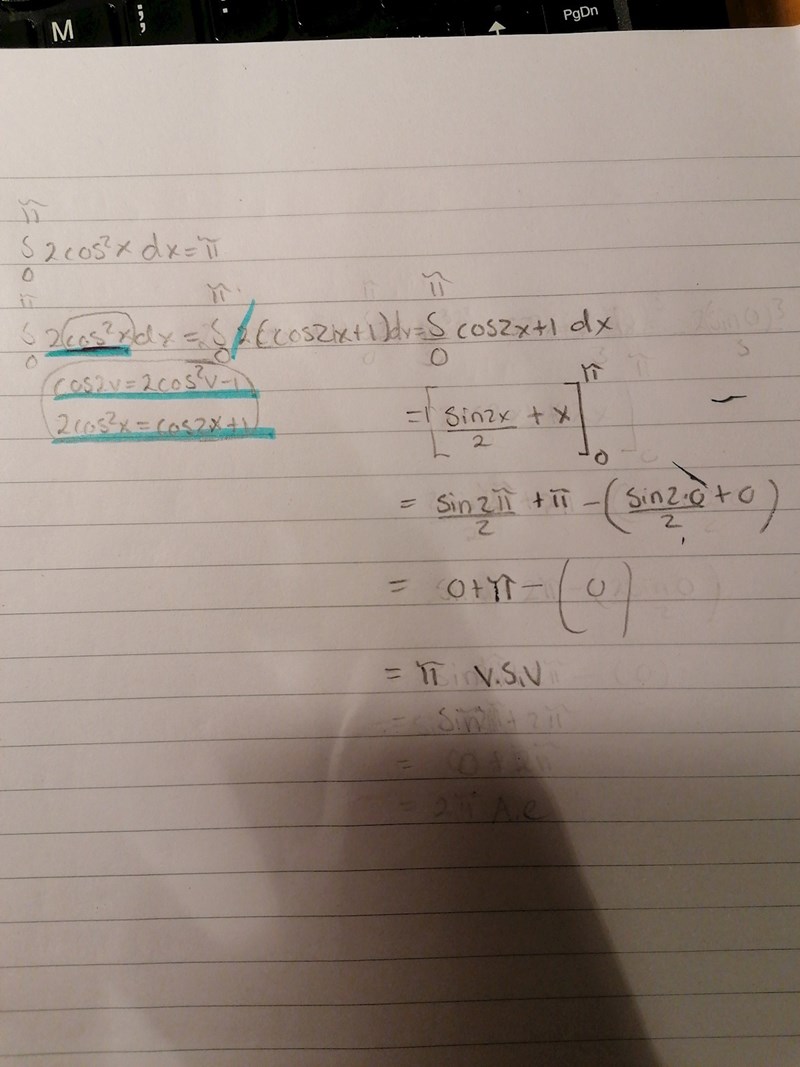 M ; : PgDn
π
∫ 2cos²x dx = π
0
π π π
∫ 2cos²x dx = ∫ 2(cos2x+1)dx = ∫ cos2x+1 dx
0 0 0
cos2v=2cos²v-1
2cos²x=cos2x+1
= [sin2x/2 + x]π0
= sin2π/2 + π - (sin2·0/2 + 0)
= 0+π-(0)
= π V.S.V
= 0+2π
= 2π A.e